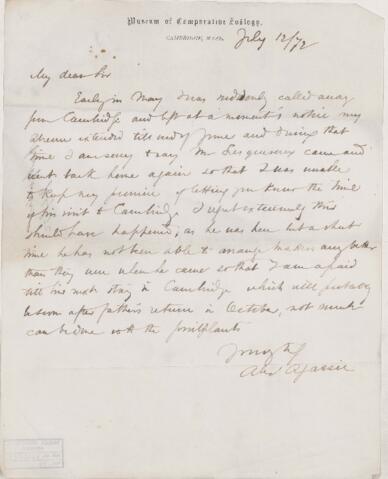 Museum of Comparative Zoölogy,
CAMBRIDGE, MASS.,
July 12/72
My dear Sir
Early in May I was suddenly called away
from Cambridge and left at a moment's notice my
absence extended till end of June and during that
time I am sorry to say Mr Lesquereux came and
went back home again so that I was unable
to keep my promise of letting you know the time
of his visit to Cambridge I regret extremely this
should have happened, as he was here but a short
time he has not been able to arrange matters any better
than they were when he came so that I am afraid
till his next stay in Cambridge which will probably
be soon after father's return in October, not much
can be done with the fossil plants
Yours truly
Alex Agassiz